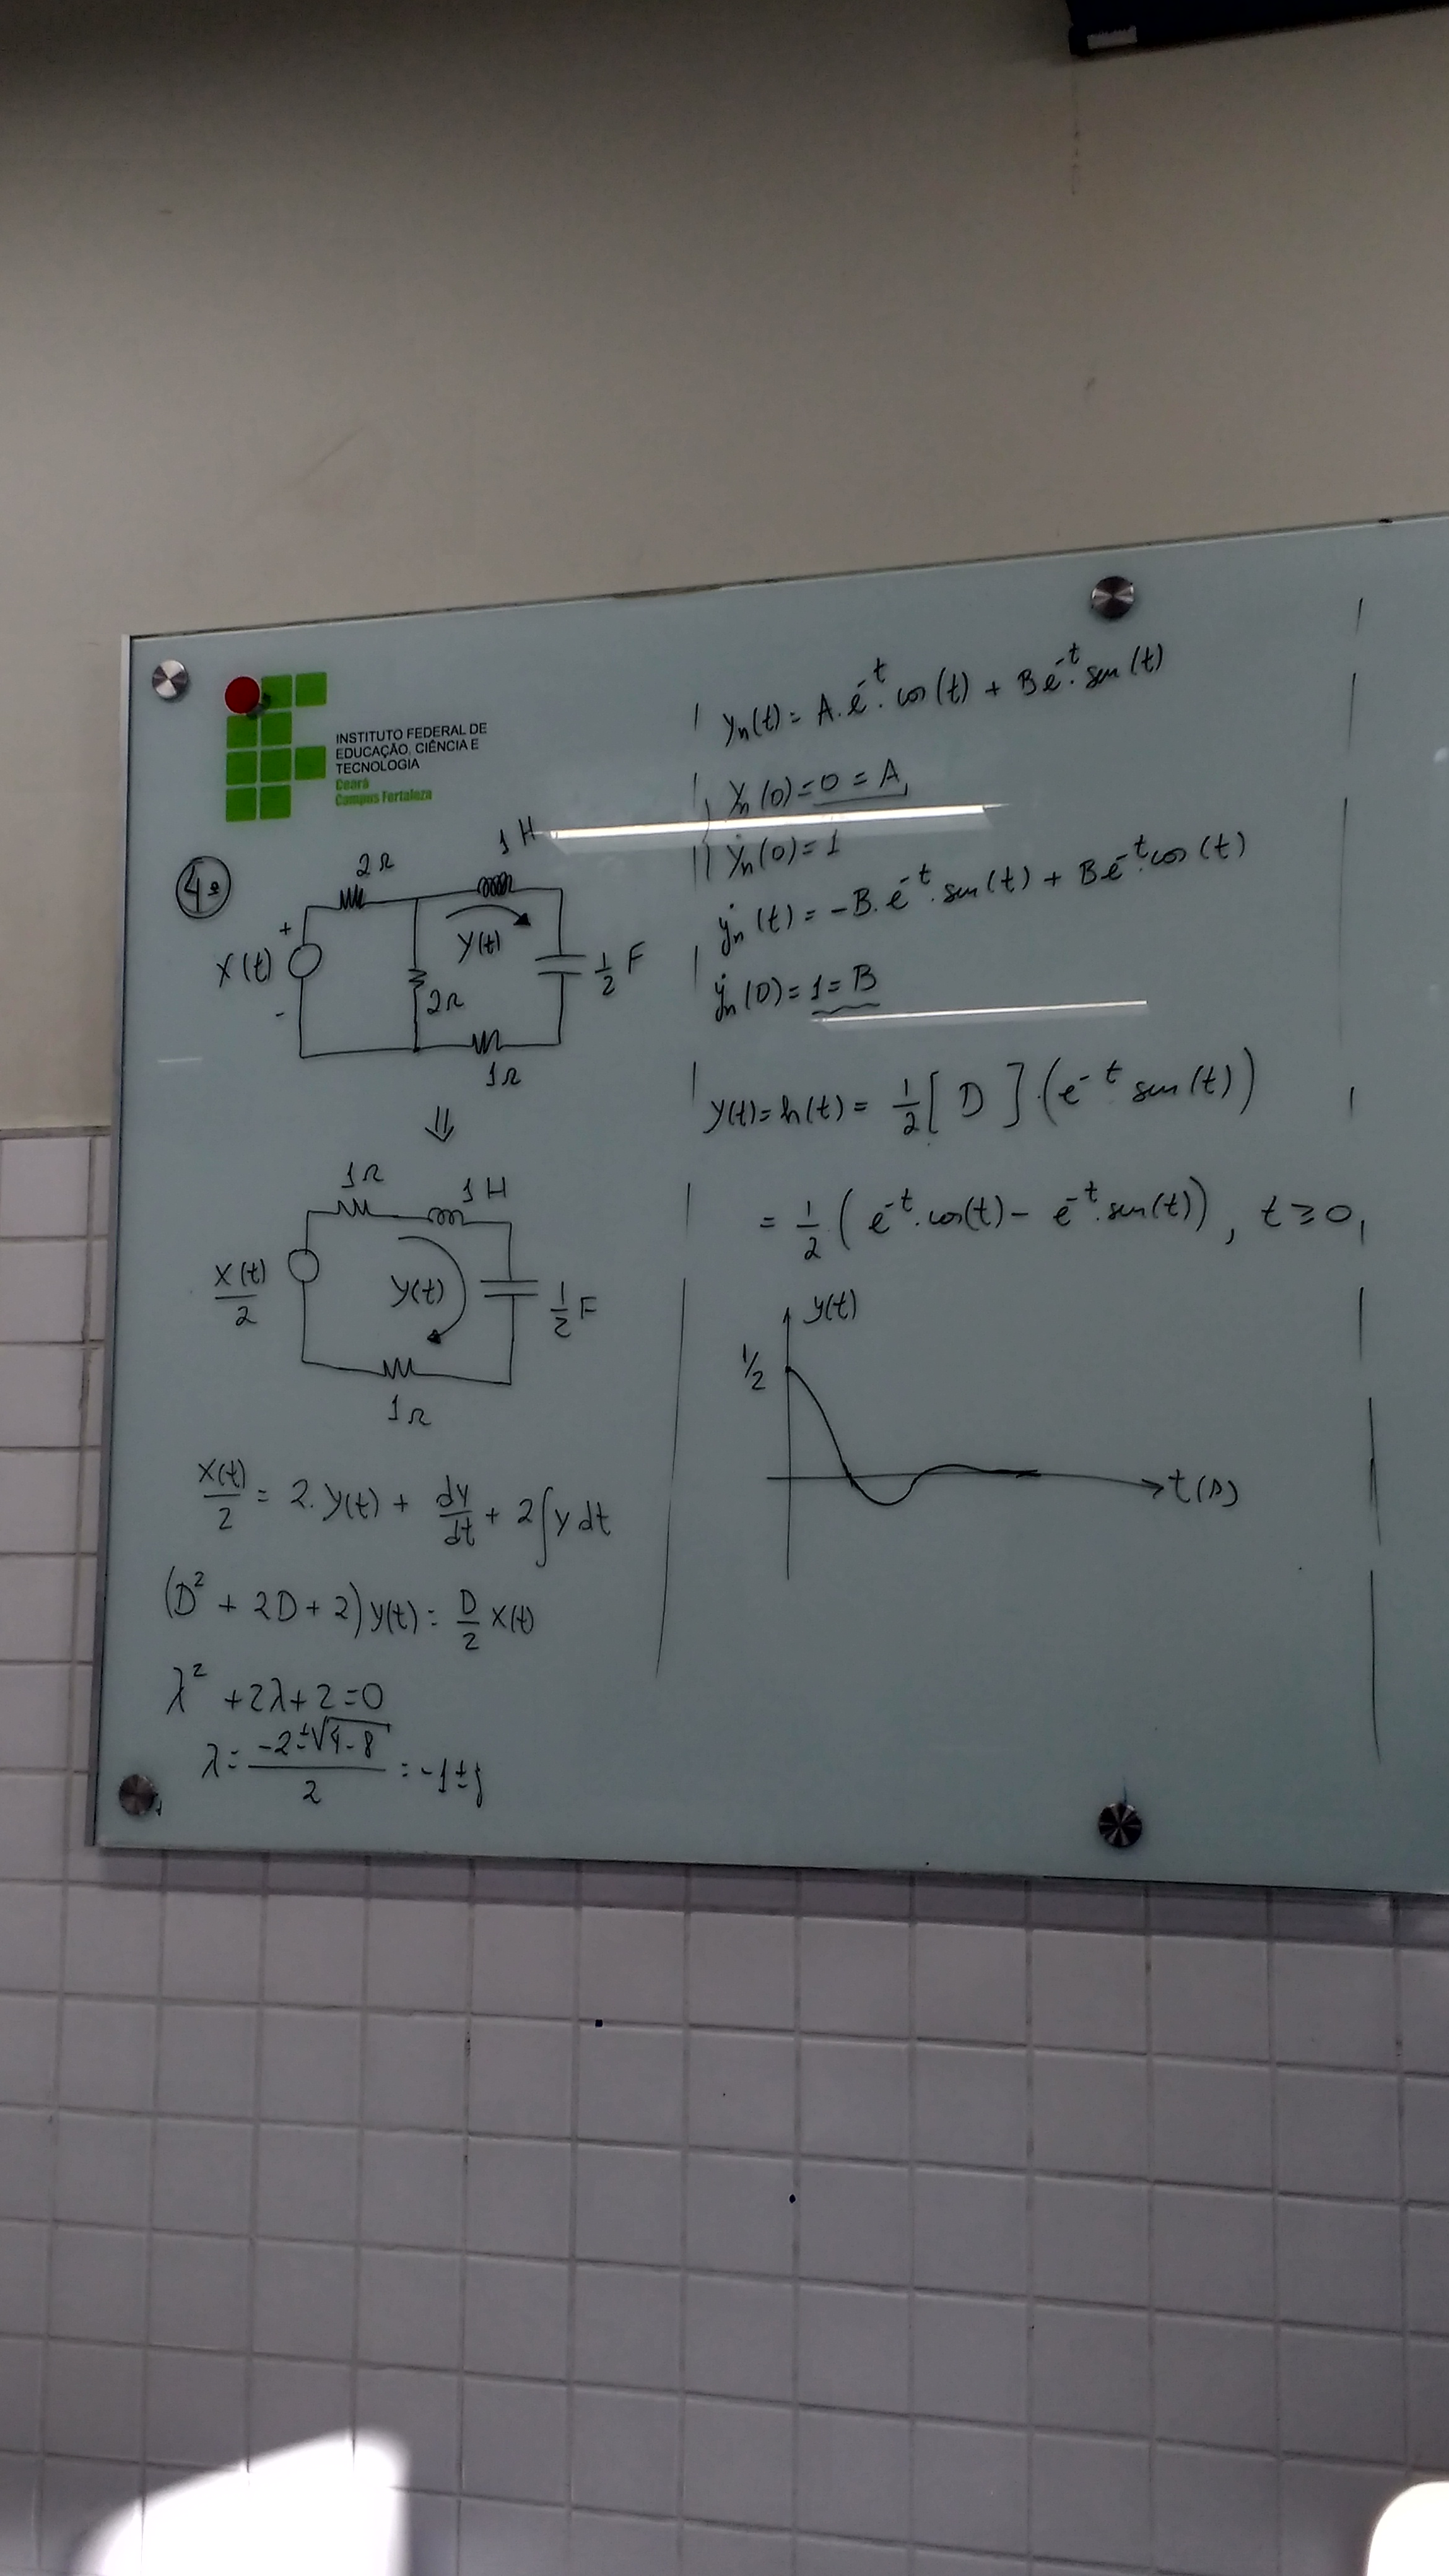 INSTITUTO FEDERAL DE
EDUCAÇÃO, CIÊNCIA E
TECNOLOGIA
Ceará
Campus Fortaleza
4º
2Ω
1 H
X(t)
+
-
y(t)
2Ω
1/2 F
1Ω
⇓
1Ω
1 H
X(t)/2
y(t)
1/2 F
1Ω
X(t)/2 = 2.y(t) + dy/dt + 2∫y dt
(D² + 2D + 2) y(t) = D/2 X(t)
λ² + 2λ + 2 = 0
λ = (-2 ± √4-8)/2 = -1 ± j
yn(t) = A.e^-t.cos(t) + B e^-t.sen(t)
yn(0) = 0 = A
ẏn(0) = 1
ẏn(t) = -B.e^-t.sen(t) + B e^-t.cos(t)
ẏn(0) = 1 = B
y(t) = h(t) = 1/2 [D].(e^-t sen(t))
= 1/2 (e^-t.cos(t) - e^-t.sen(t)), t ≥ 0
y(t)
1/2
t(s)